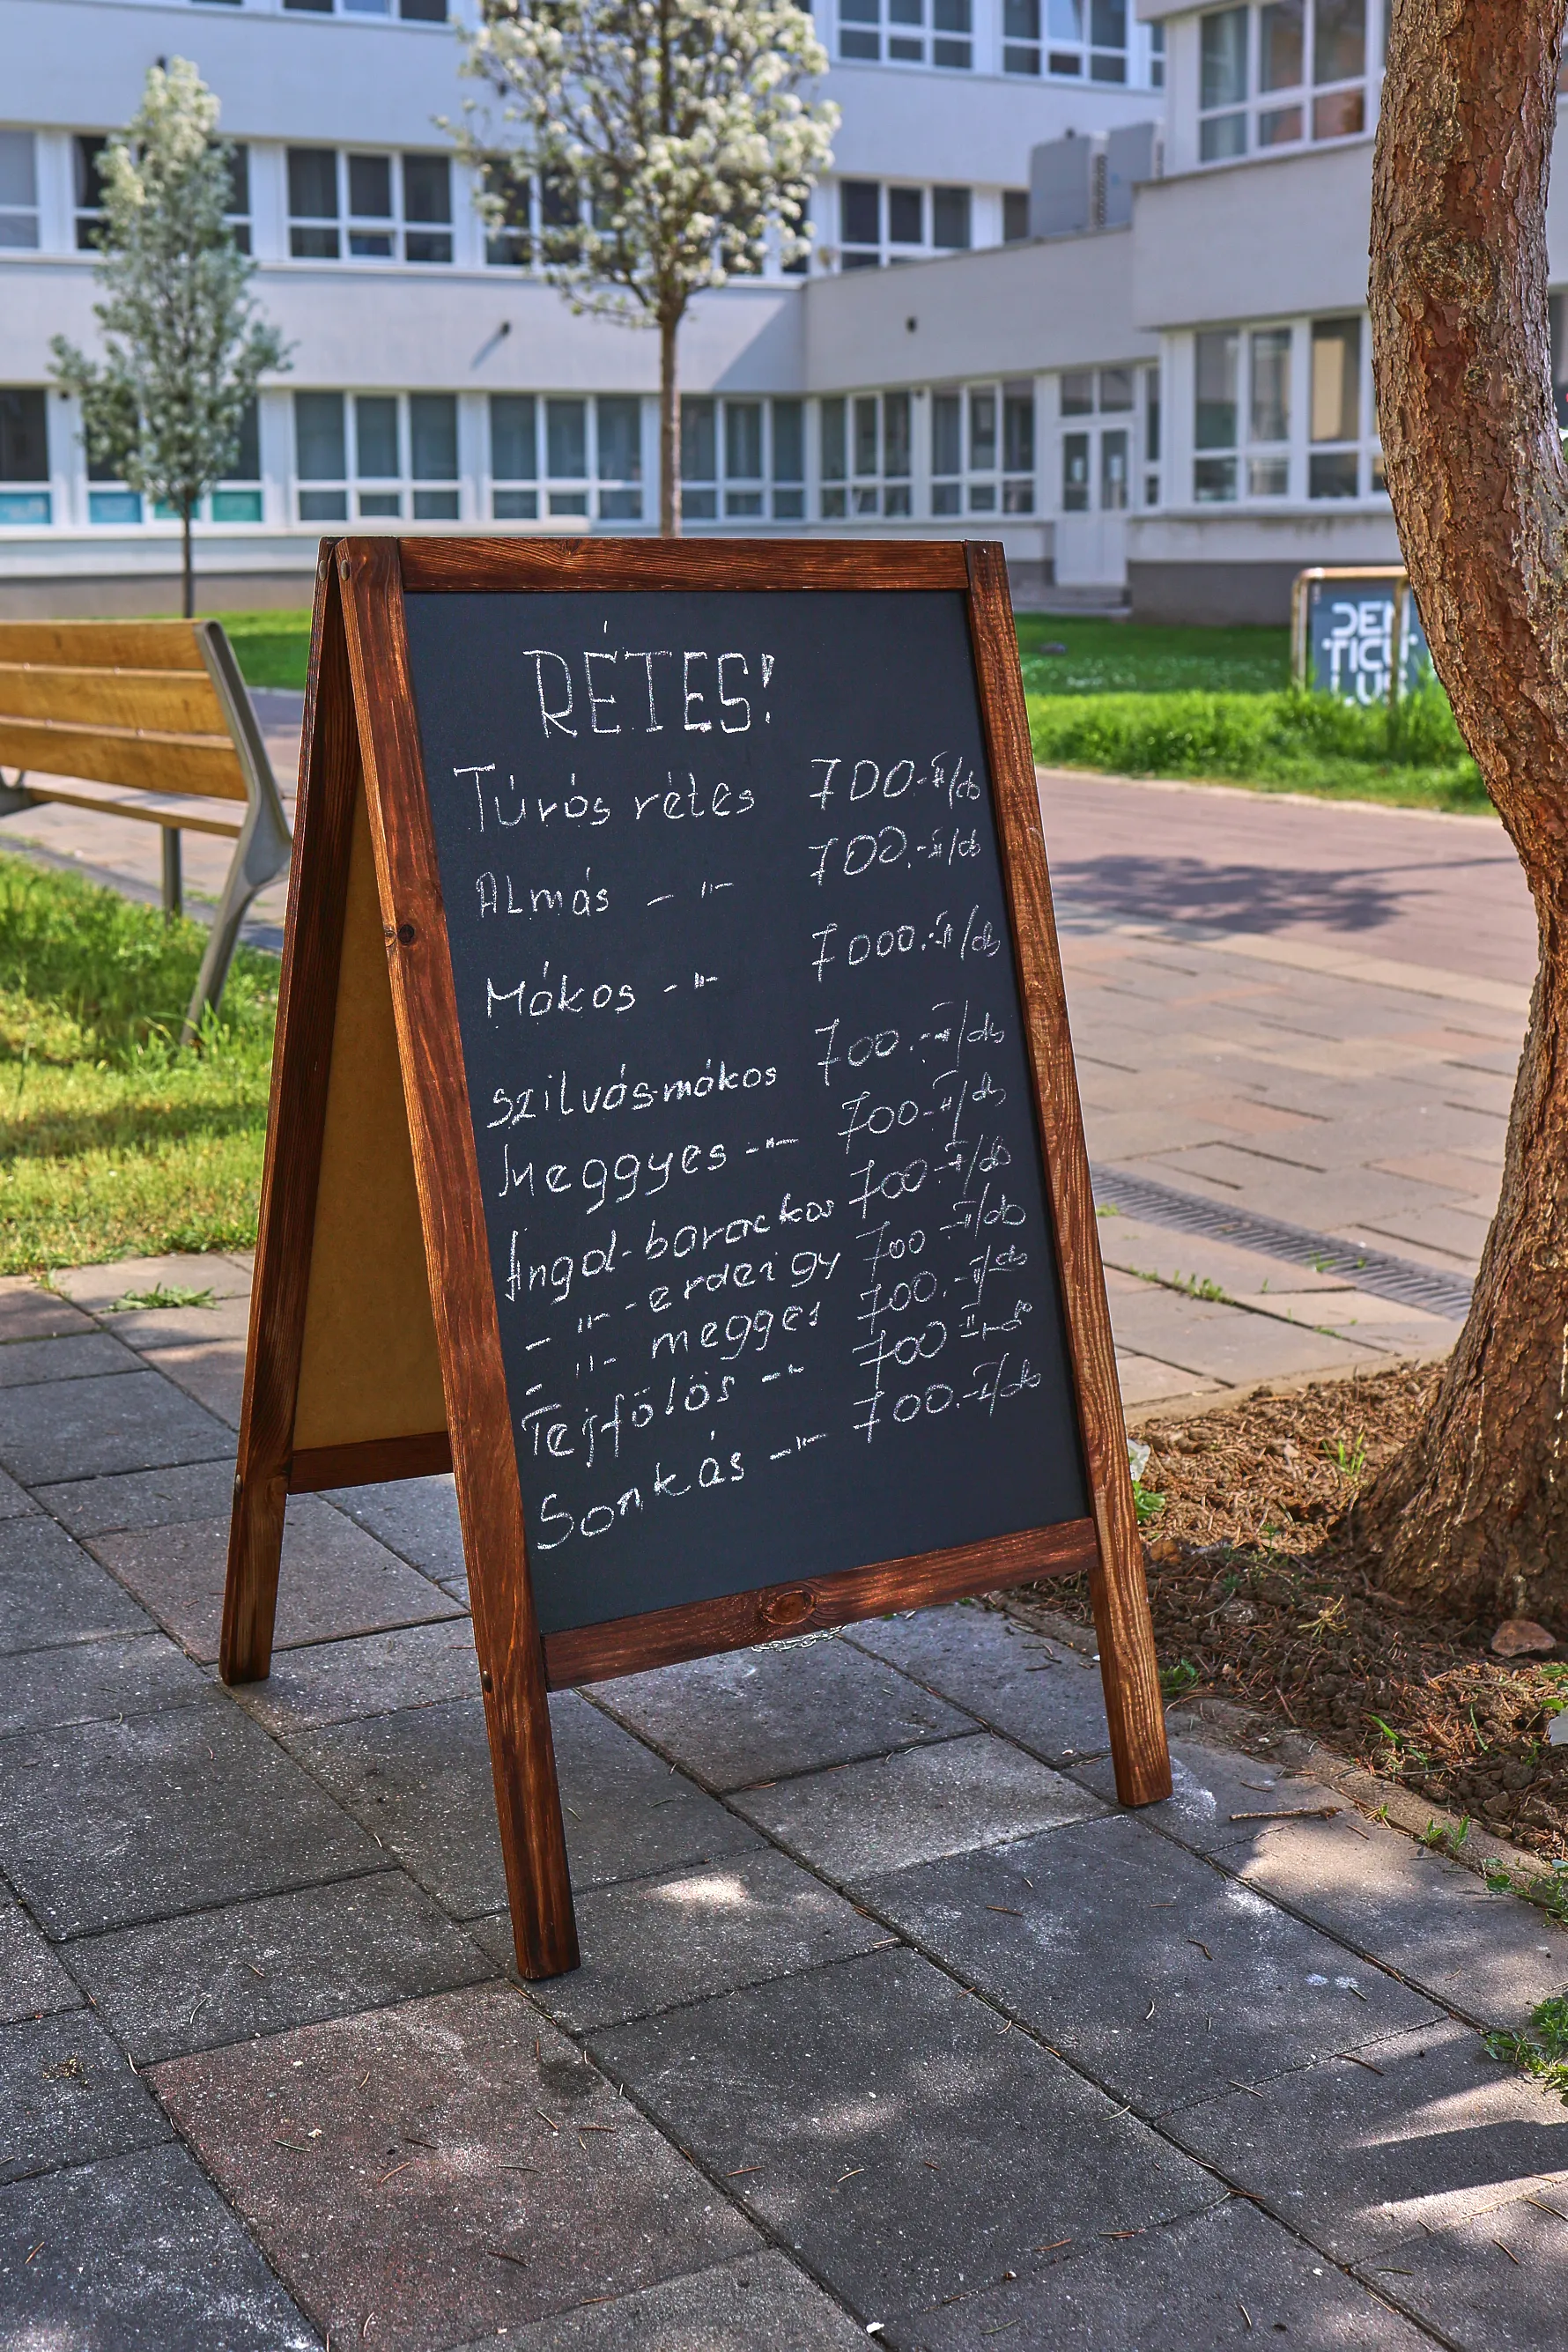 RÉTES!
Túrós rétes 700.-Ft/db
Almás -"- 700.-Ft/db
Mákos -"- 7000.-Ft/db
Szilvás-mákos 700.-Ft/db
Meggyes -"- 700.-Ft/db
Angol-barackos 700.-Ft/db
-"- -erdei gy 700.-Ft/db
-"- megges 700.-Ft/db
Tejfölös -"- 700 Ft/db
Sonkás -"- 700.-Ft/db
DEN
TICU
LUS